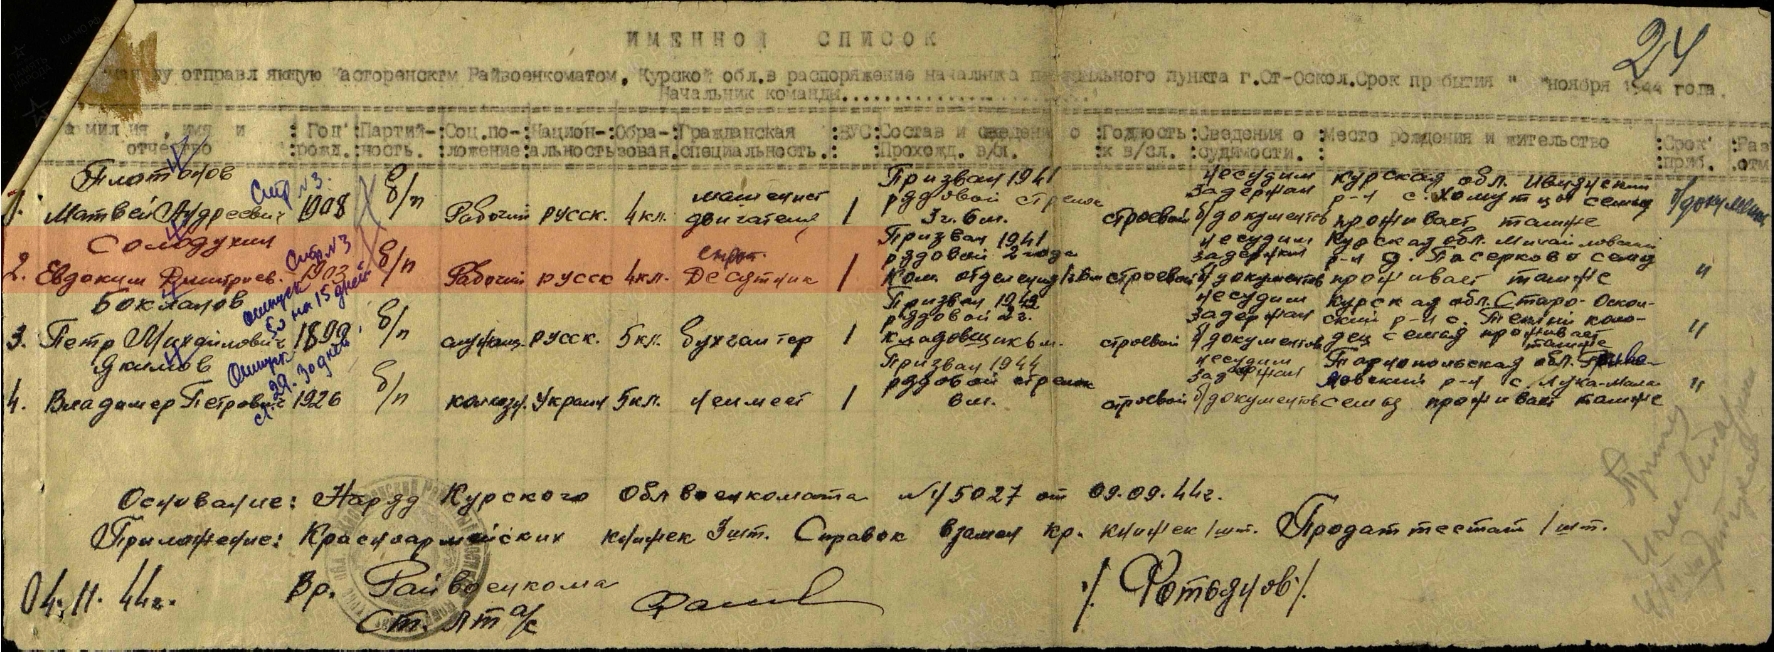 24
ИМЕННОЙ СПИСОК
команду отправляющую Касторенским Райвоенкоматом, Курской обл. в распоряжение начальника пункта г.Ст-Оскол. Срок прибытия " "ноября 1944 года.
Начальник команды....................
Фамилия, имя и отчество : Год рожд. : Партий-ность. : Соц.по-ложение : Национ-альность : Обра-зован. : Гражданская специальность. : ВУС : Состав и сведения о Прохожд. в/сл. : Годность к в/сл. : Сведения о судимости. : Место рождения и жительство : Срок приб. : Раз отм
1. Платонов Матвей Андреевич 1908 б/п Рабочий русск. 4 кл. машинист двигателя / Призван 1941 рядовой стрелок 3 г. 6 м. строевой несудим задержан б/документов Курская обл. р-н с. Хомутцы семья проживает там же б/документов
Стр. №3.
2. Солодухин Евдоким Дмитриев. 1903 б/п Рабочий русск 4 кл. Десятник / Призван 1941 рядовой 2 года Ком. отделения строевой несудим задержан б/документов Курская обл. Михайловский р-н семья проживает там же "
Стр. №3
отпуск на 15 дней
3. Бокланов Петр Михайлович 1899 б/п служащ. русск. 5 кл. бухгалтер / Призван 1942 рядовой 2 г. кладовщик 6 м. строевой несудим задержан б/документов Курская обл. Старо-Оскольский р-н с. Теплый колодец семья проживает там же "
Отпуск 30 дней
4. Якимов Владимер Петрович 1926 б/п колхозн. Украин 5 кл. неимеет / Призван 1944 рядовой стрелок 6 м. строевой несудим задержан б/документов Тарнопольская обл. р-н с. Лука-Мала семья проживает там же "
Основание: Наряд Курского облвоенкомата №1/5027 от 09.09.44г.
Приложение: Красноармейских книжек 3 шт. Справок взамен кр. книжек 1 шт. Продаттестат 1 шт.
04.11.44г. Вр. Райвоенкома
Ст. л-т а/с /Фотьянов/.